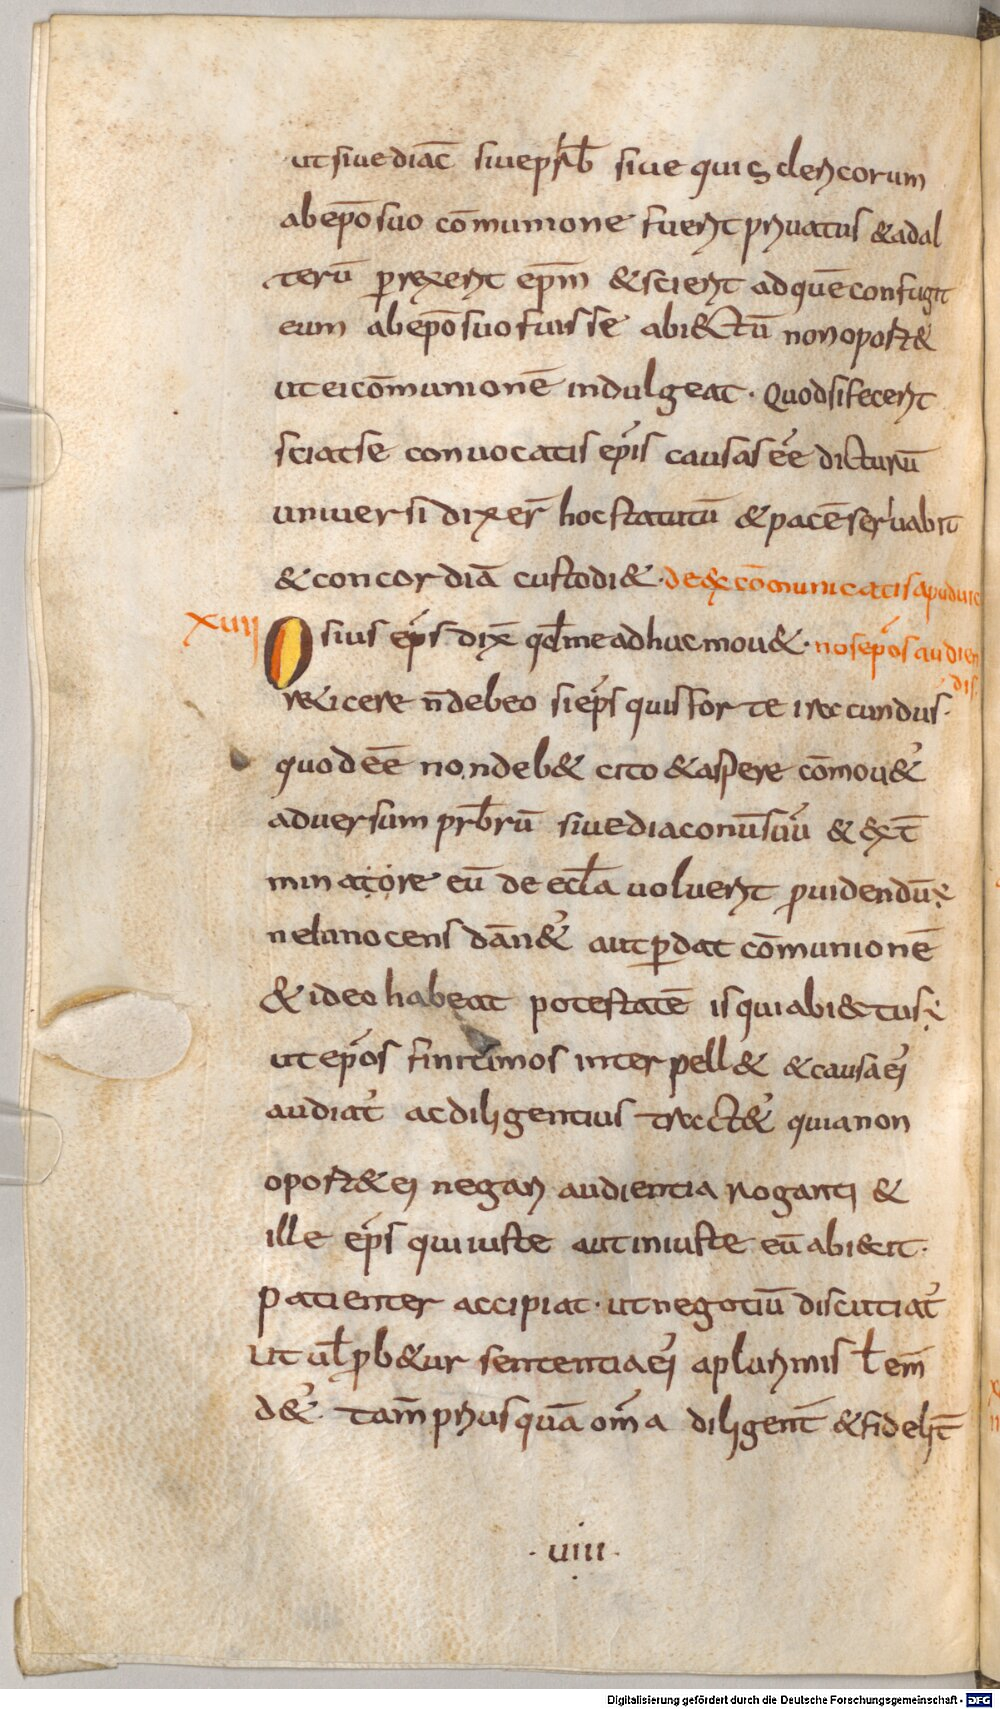 ut siue diac̄ siue p̄sb̄ siue quis clericorum
ab ep̄o suo cōmunione fuerit priuatus & ad al
terū perrexerit ep̄m & scierit ad quē confugit
eum ab ep̄o suo fuisse abi&ctū non oport&
ut ei cōmunionē indulgeat · Quod si fecerit
sciat se conuocatis ep̄is causas eē dicturū
uniuersi dixer̄ hoc statutū & pacē seruabit
& concordiā custodi& · de excōmunicatis apud
XVII Osius ep̄s dix̄ qd̄ me adhuc mou& · nos ep̄os audien
dis
r&icere n̄ debeo si ep̄s quis forte iracundus ·
quod eē non deb& cito & aspere cōmou&ʼ
aduersum pr̄b̄rū siue diaconū suū & ext̄
minatore eū de eccl̄a uoluerit p̄uidendū ÷
ne innocens dān&ʼ aut p̄dat cōmunionē
& ideo habeat potestatē is qui abi&ctus ÷
ut ep̄os finitimos interpell& & causa ei
audiatʼ ac diligentius tract&ʼ quia non
oport& ei negari audientia roganti &
ille ep̄s qui iuste aut iniuste eū abiecit ·
patienter accipiat · ut negotiū discutiatʼ
ut ul̄ prob&ur sententia ei a plurimis l̄ em̄
d&ʼ · tam̄ priusquā om̄a diligent̄ & fidelit̄
· uiii ·
Digitalisierung gefördert durch die Deutsche Forschungsgemeinschaft - DFG